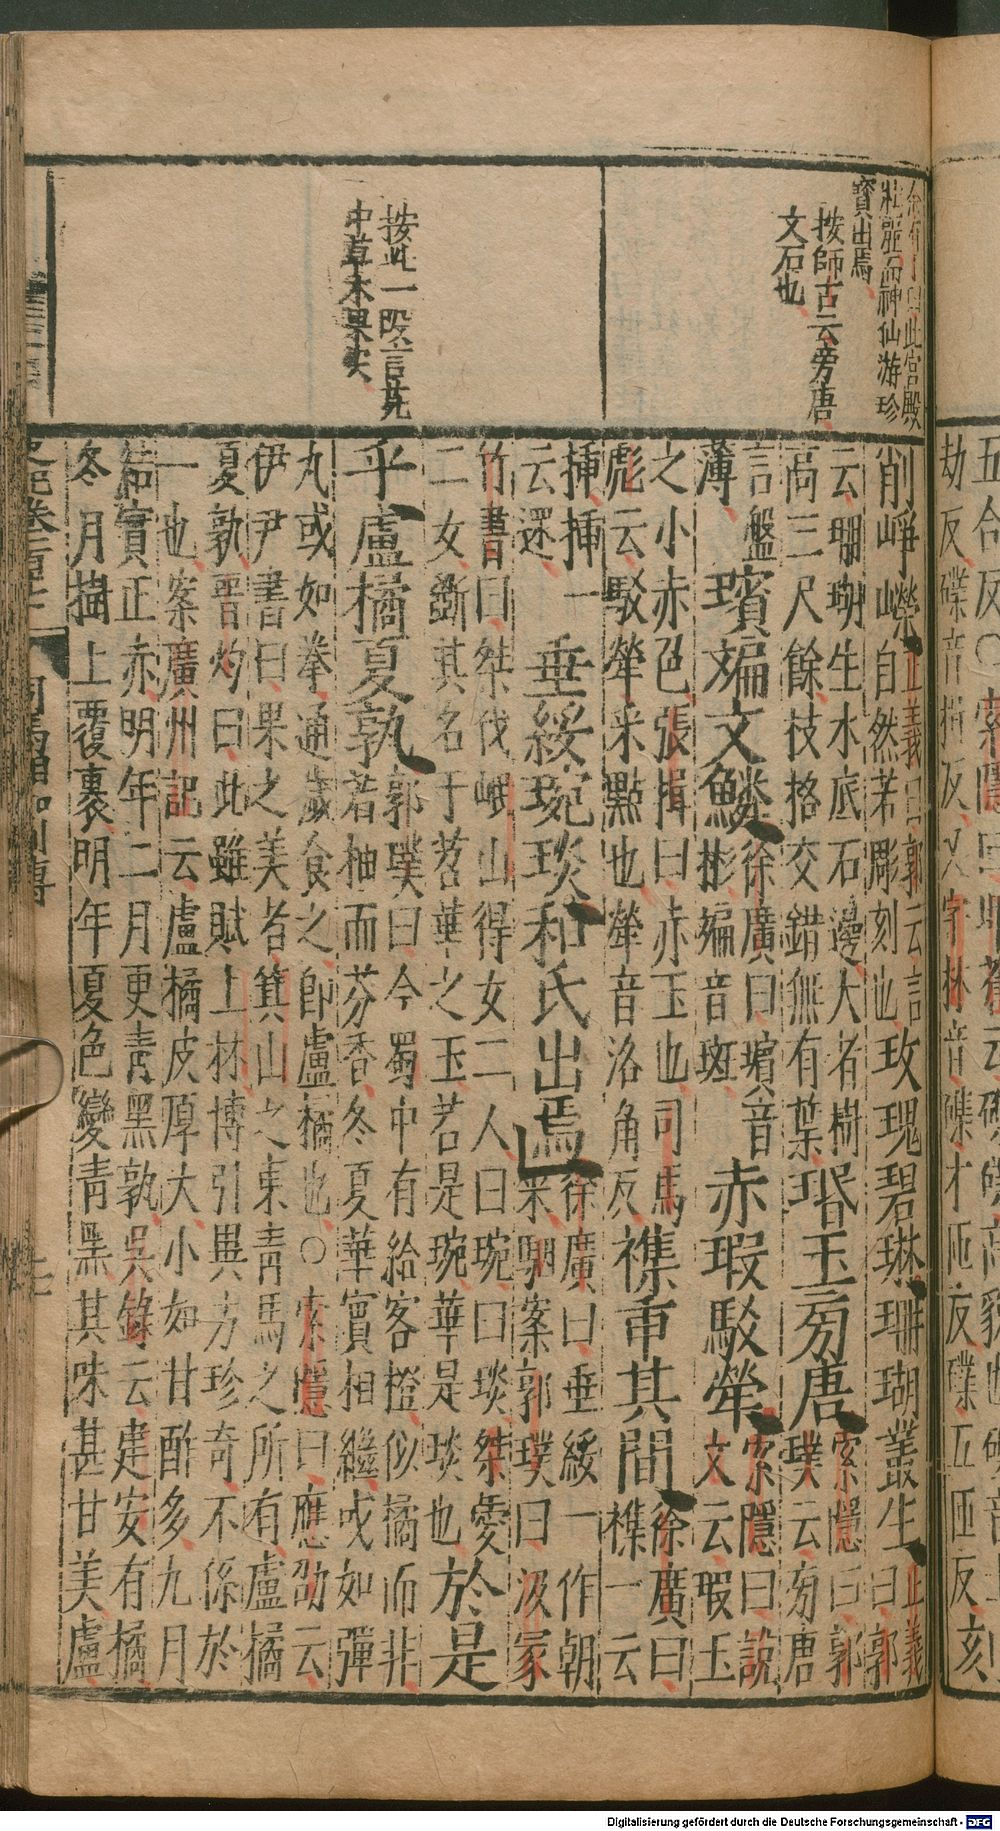 劫反磼音揖反又字林音磼才匝反磼五匝反刻
削崢嶸
正義曰郭云言
自然若彫刻也
玫瑰碧琳珊瑚叢生
正義
曰郭
云珊瑚生水底石邊大者樹
高三尺餘枝格交錯無有葉
瑉玉旁唐
索隱曰郭
璞云旁唐
言盤
薄
瑸斒文鱗
徐廣曰瑸音
彬斒音斑
赤瑕駁犖
索隱曰說
文云瑕玉
之小赤色張揖曰赤玉也司馬
彪云駁犖采點也犖音洛角反
襍臿其間
徐廣曰
襍一云
插插一
云還
垂綏琬琰和氏出焉
徐廣曰垂綏一作朝
采駰案郭璞曰汲冢
竹書曰桀伐岷山得女二人曰琬曰琰桀愛
二女斲其名于苕華之玉苕是琬華是琰也
於是
乎盧橘夏孰
郭璞曰今蜀中有給客橙似橘而非
若柚而芬香冬夏華實相繼或如彈
丸或如拳通歲食之即盧橘也○索隱曰應劭云
伊尹書曰果之美者箕山之東青馬之所有盧橘
夏孰晉灼曰此雖賦上林博引異方珍奇不係於
一也案廣州記云盧橘皮厚大小如甘酢多九月
結實正赤明年二月更青黑孰吳錄云建安有橘
冬月樹上覆裹明年夏色變青黑其味甚甘美盧
此宮殿
壯麗而神仙游珍
寶出焉
按師古云旁唐
文石也
按此一段言苑
中草木果實
司馬相如列傳
Digitalisierung gefördert durch die Deutsche Forschungsgemeinschaft - DFG